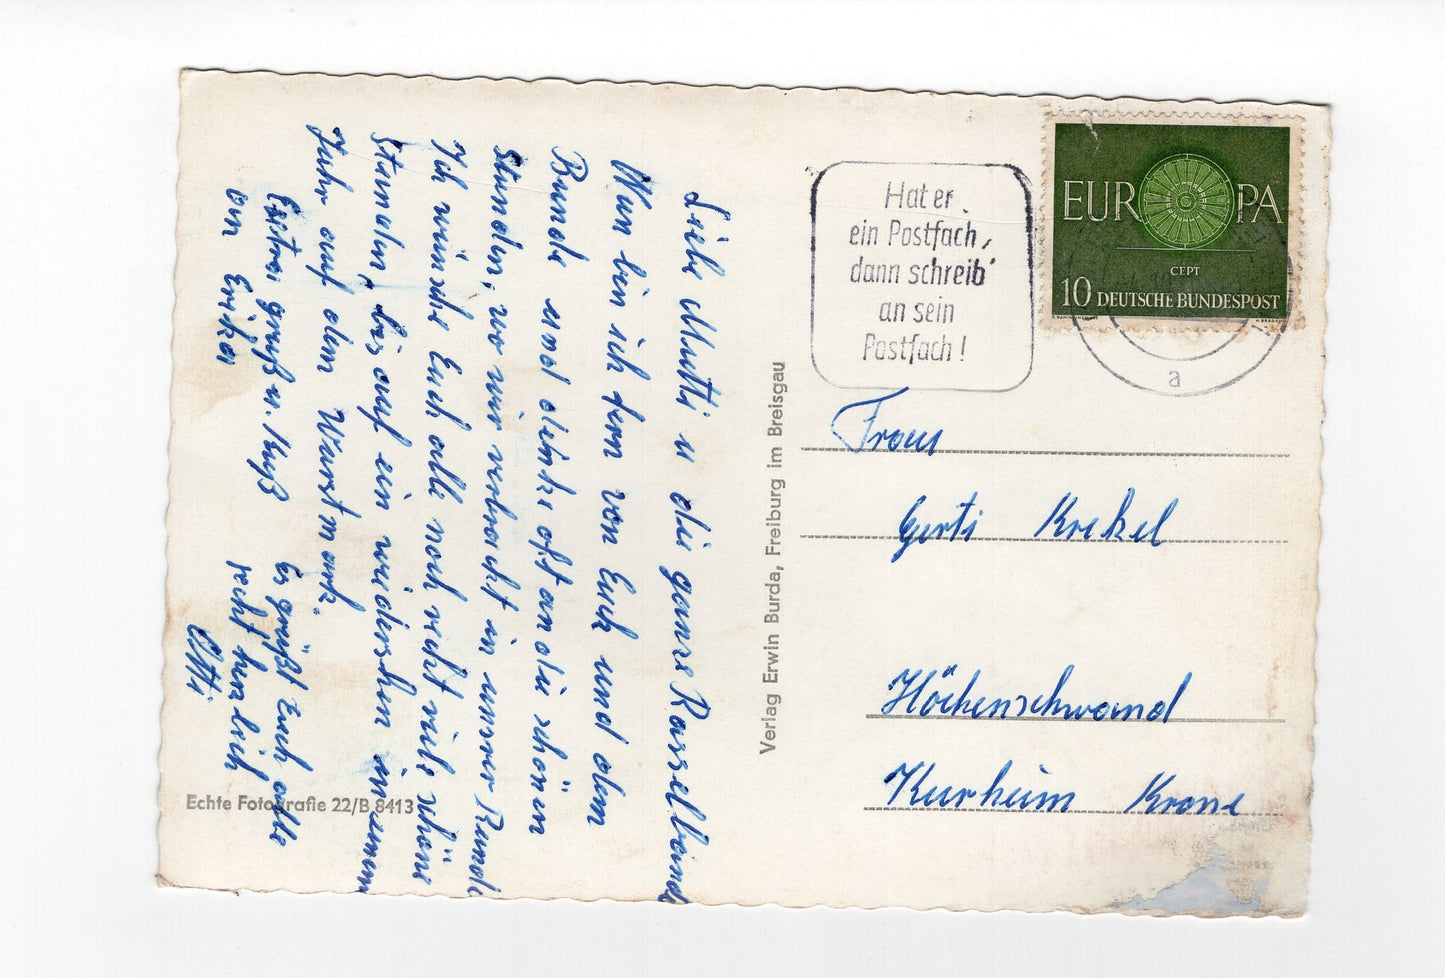 Liebe Mutti u die ganze Rasselbande
Nun bin ich fern von Euch und dem
Bunde und denke oft an die schönen
Stunden, wo wir verbracht in unsrer Runde
Ich wünsche Euch alle noch recht viele schöne
Stunden, bis auf ein wiedersehen in einem
Jahr auf dem Wurstmark.
Extra gruß u. Kuß
an Erika
Es grüßt Euch alle
recht herzlich
Otti
Echte Fotografie 22/B 8413
Verlag Erwin Burda, Freiburg im Breisgau
Hat er
ein Postfach,
dann schreib'
an sein
Postfach!
EUROPA
CEPT
10 DEUTSCHE BUNDESPOST
a
Frau
Gerti Krekel
Höchenschwand
Kurheim Krone